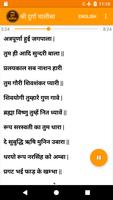 11:10
श्री दुर्गा चालीसा
ENGLISH
3:24
5:24
अन्नपूर्णा हुई जगपाला॥
तुम ही आदि सुन्दरी बाला॥
प्रलयकाल सब नाशन हारी।
तुम गौरी शिवशंकर प्यारी॥
शिव योगी तुम्हरे गुण गावें।
ब्रह्मा विष्णु तुम्हें नित ध्यावें॥
रूप सरस्वती का तुम धारा।
दे सुबुद्धि ऋषि मुनिन उबारा॥
धरयो रूप नरसिंह को अम्बा।
प्रगट भई फाड़ के खम्भा॥